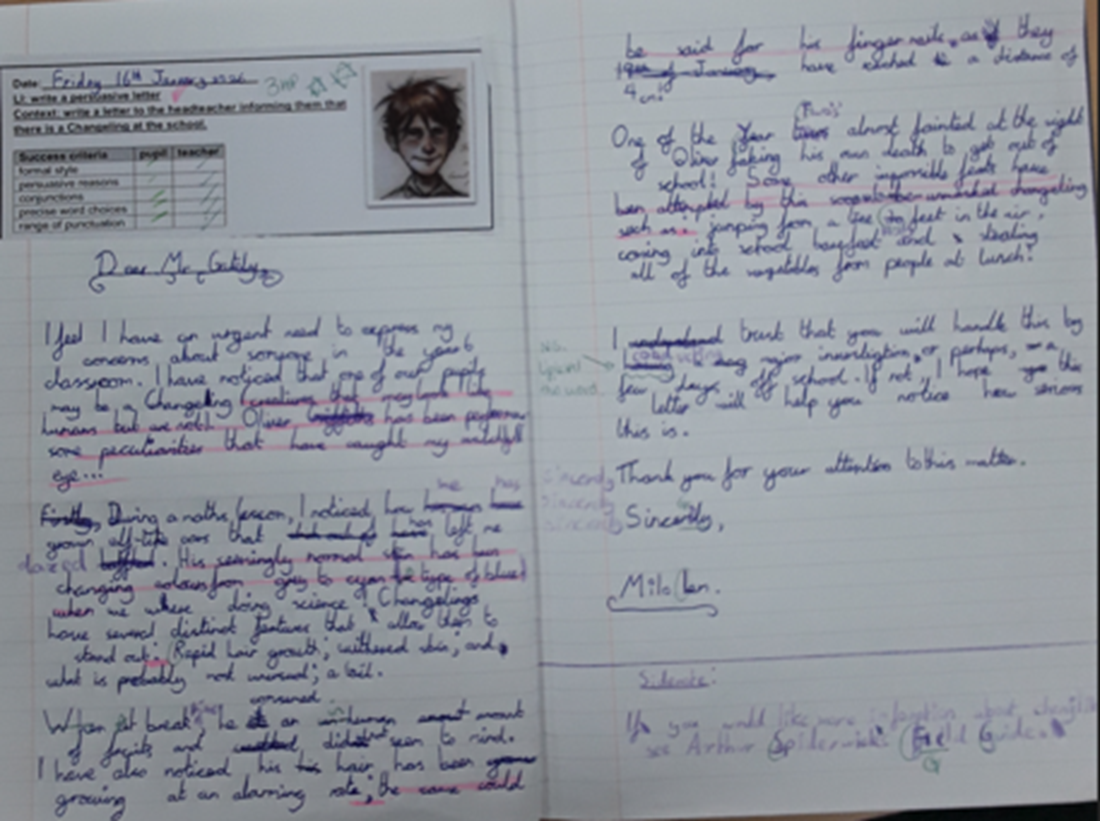 Date: Friday 16th January 2026
3HP
LI: write a persuasive letter
Context: write a letter to the headteacher informing them that
there is a Changeling at the school.
Success criteria pupil teacher
formal style
persuasive reasons
conjunctions
precise word choices
range of punctuation
Dear Mr
I feel I have an urgent need to express my
concerns about someone in the year 6
classroom. I have noticed that one of our pupils
may be a Changeling (creatures that may look like
humans but are not). Oliver has been
some peculiarities that have caught my
eye...
Firstly, During a maths lesson, I noticed he has
grown elf-like ears that has left me
dazed. His seemingly normal skin has been
changing colours from grey to cyan (a type of blue)
when we where doing science! Changelings
have several distinct features that allow them to
stand out: Rapid hair growth; withered skin; and,
what is probably not unusual; a tail.
consumed
When at break time, he an inhuman amount
of fruits and didn't seem to mind.
I have also noticed his hair has been
growing at an alarming rate; the same could
be said for his finger nails, as they
have reached a distance of
4cm!
One of the Year almost fainted at the sight
of Oliver faking his own death to get out of
school! Some other impossible feats have
been attempted by this changeling
such as: jumping from a tree feet in the air,
coming into school barefoot and stealing
all of the vegetables from people at lunch!
I trust that you will handle this by
conducting a major investigation, or perhaps, a
few days off school. If not, I hope this
letter will help you notice how serious
this is.
Thank you for your attention to this matter.
sincerely
sincerely
sincerely
Sincerely,
Milo
Sidenote:
If you would like more information about
see Arthur Spiderwick's Field Guide.
G